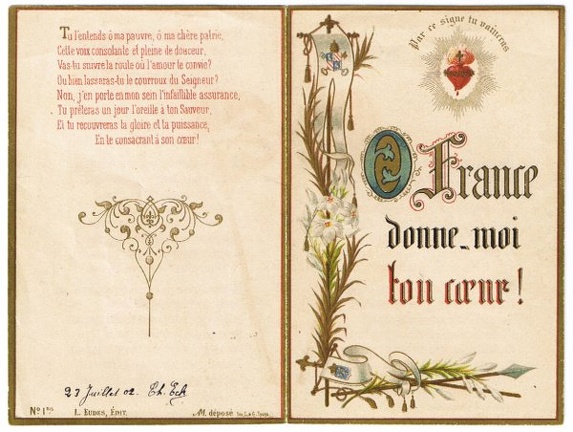 Tu l'entends ô ma pauvre, ô ma chère patrie,
Cette voix consolante et pleine de douceur.
Vas-tu suivre la route où l'amour te convie?
Ou bien lasseras-tu le courroux du Seigneur?
Non, j'en porte en mon sein l'infaillible assurance,
Tu prêteras un jour l'oreille à ton Sauveur,
Et tu recouvreras la gloire et la puissance,
En te consacrant à son cœur!
23 Juillet 02. Th. Eck
No 1 bis
L. Eudes, Édit.
M. déposé
Par ce signe tu vaincras
O France
donne-moi
ton cœur!